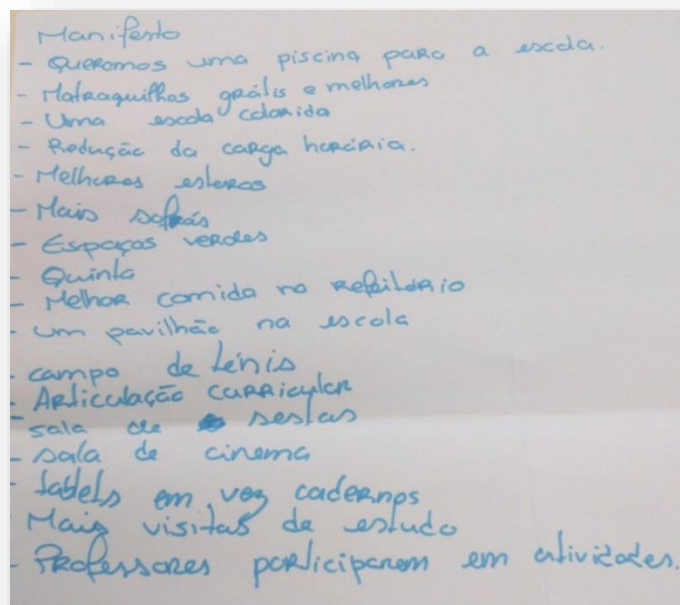 Manifesto
- Queremos uma piscina para a escola.
- Matraquilhos grátis e melhores
- Uma escola colorida
- Redução da carga horária.
- Melhores estores
- Mais sofás
- Espaços verdes
- Quinta
- Melhor comida no refeitório
- um pavilhão na escola
- campo de ténis
- Articulação curricular
- sala de sestas
- sala de cinema
- tablets em vez cadernos
- Mais visitas de estudo
- Professores participarem em atividades.